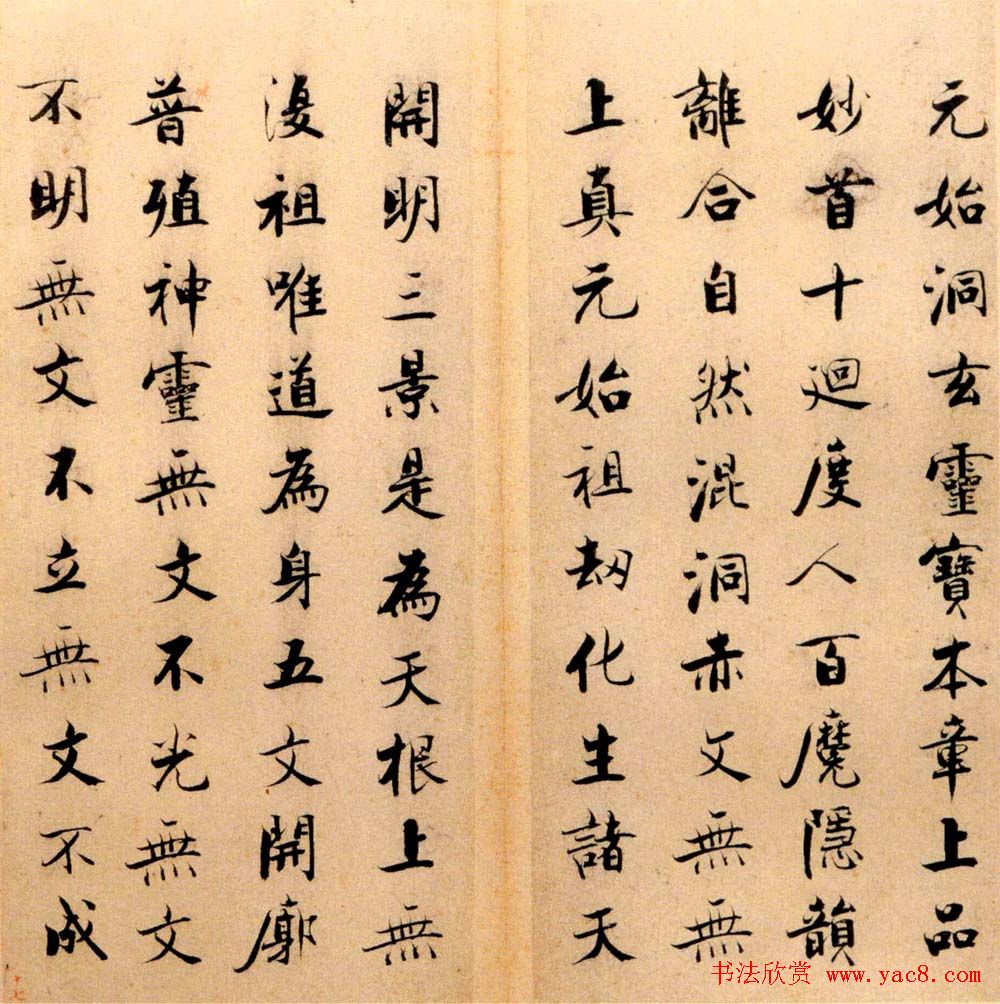 元始洞玄靈寶本章上品
妙首十迴度人百魔隱韻
離合自然混洞赤文無無
上真元始祖劫化生諸天
開明三景是為天根上無
復祖唯道為身五文開廓
普殖神靈無文不光無文
不明無文不立無文不成
十七
书法欣赏 www.yac8.com